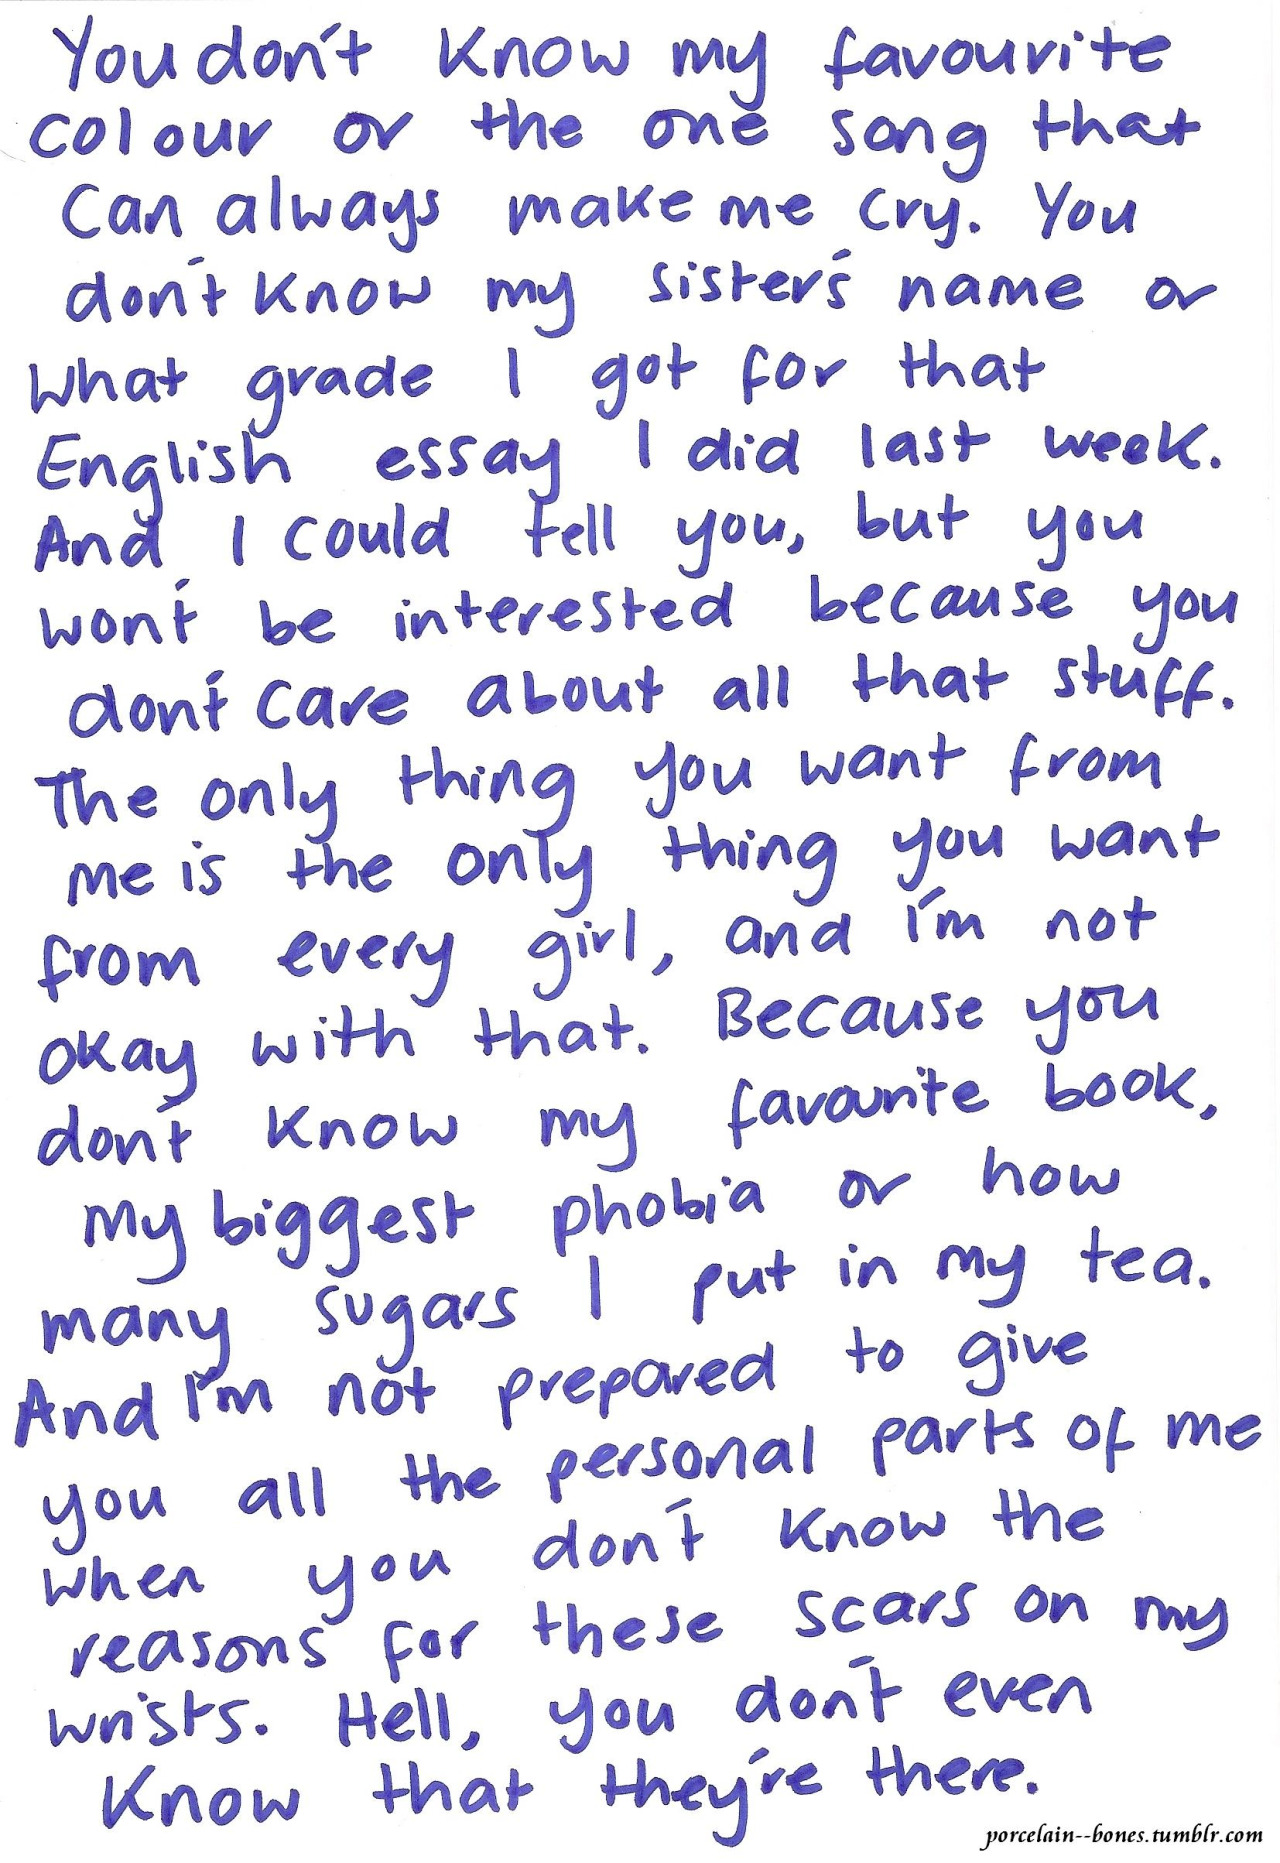 You don't know my favourite
colour or the one song that
can always make me cry. You
don't know my sister's name or
what grade I got for that
English essay I did last week.
And I could tell you, but you
won't be interested because you
don't care about all that stuff.
The only thing you want from
me is the only thing you want
from every girl, and I'm not
okay with that. Because you
don't know my favourite book,
my biggest phobia or how
many sugars I put in my tea.
And I'm not prepared to give
you all the personal parts of me
when you don't know the
reasons for these scars on my
wrists. Hell, you don't even
know that they're there.
porcelain--bones.tumblr.com